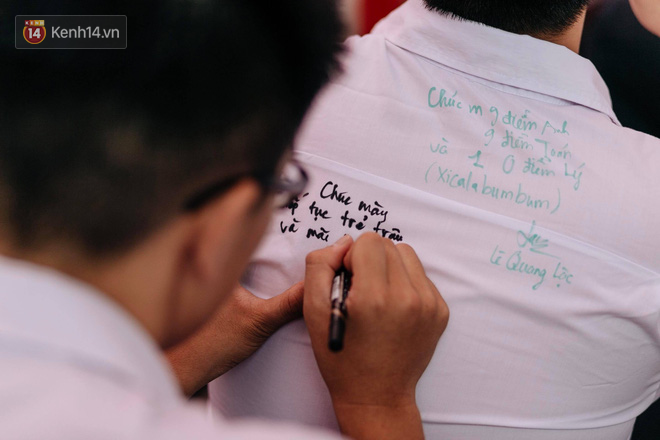 KENH 14
Kenh14.vn
Chúc m 9 điểm Anh
9 điểm Toán
và 1 0 điểm Lý
(Xicalabumbum)
Lê Quang Lộc
Chúc mày
tục trẻ trâu
và mãi